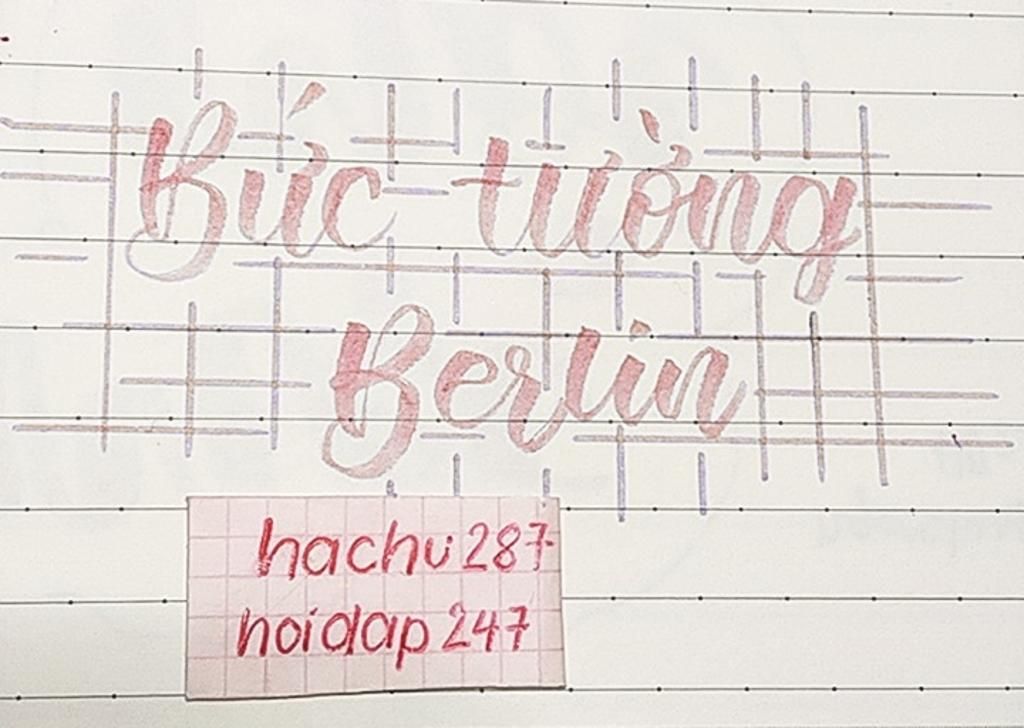 Bức tường
Berlin
hachu287
hoidap247